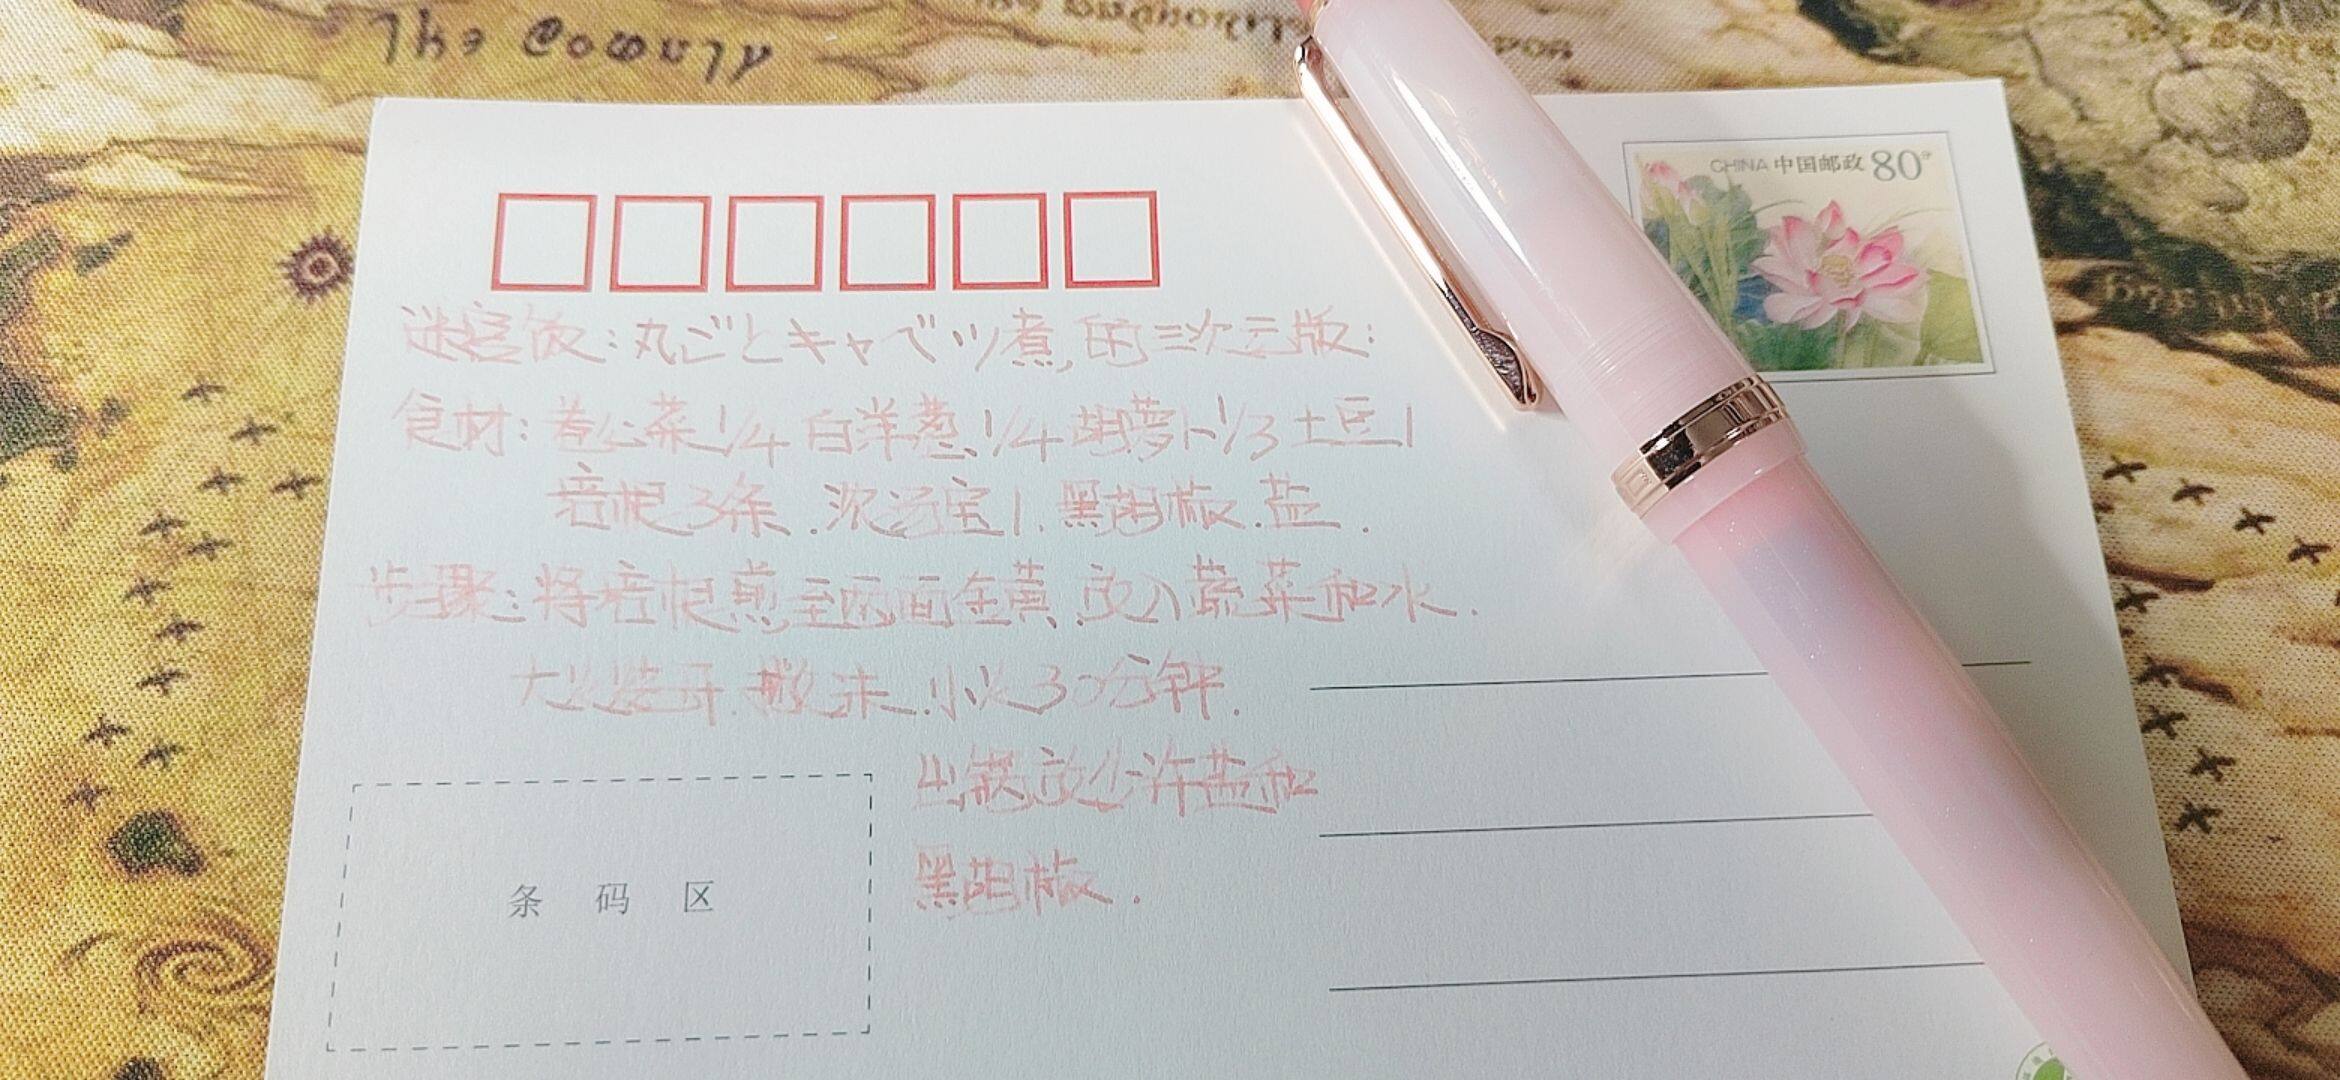 The County
CHINA 中国邮政 80分
迷宫饭:丸ごとキャベツ煮,的三次元版:
食材:卷心菜1/4 白洋葱1/4 胡萝卜1/3 土豆1
培根3条.浓汤宝1.黑胡椒.盐.
步骤:将培根煎至两面金黄.放入蔬菜和水.
大火烧开.撇沫.小火30分钟.
出锅放少许盐和
黑胡椒.
条码区